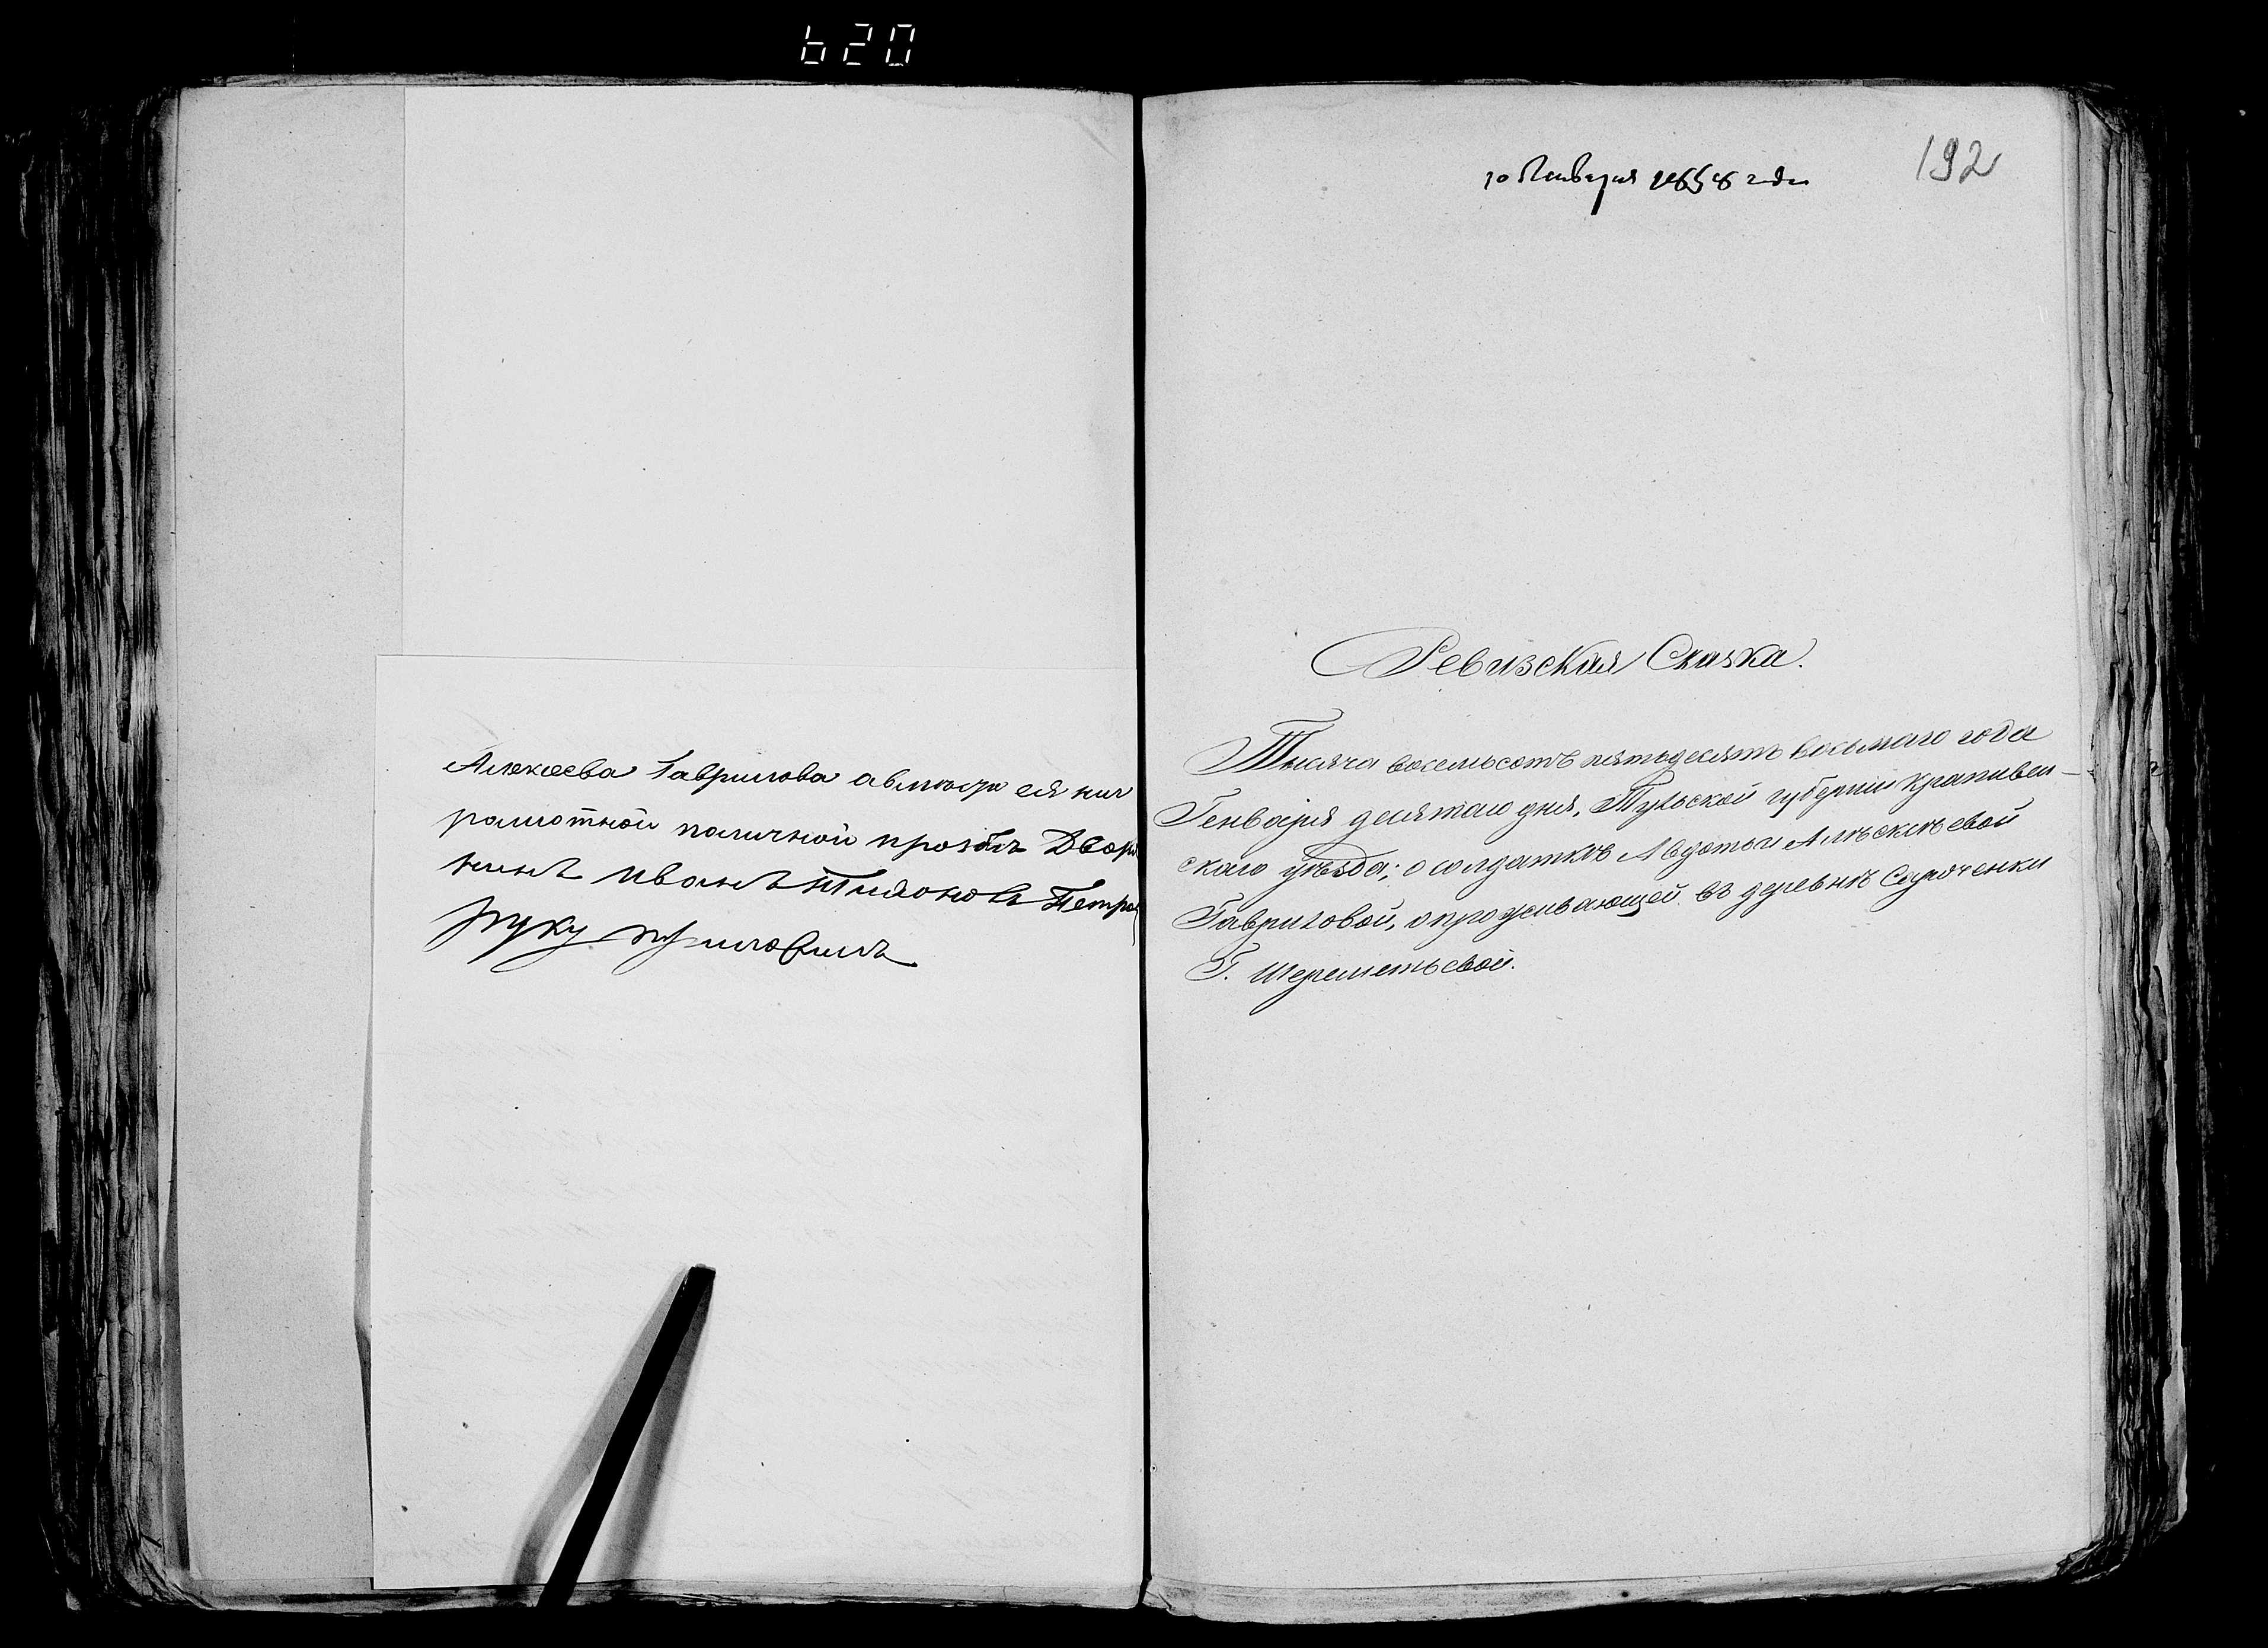 620
Алексеева Гаврилова а вместо ея ниг
рамотной поличной прозбѣ Двори
нинъ Иванъ Тихоновъ Петров
руку приложилъ
10 Января 1858 года
192
Ревизская Сказка.
Тысяча восемьсотъ пятьдесятъ восьмаго года
Генваря десятаго дня, Тульской губернии Крапивен-
скаго уѣзда; о солдаткѣ Авдотьи Алѣксѣевой
Гавриловой, проживающей въ деревнѣ
Г. Шереметьевой.